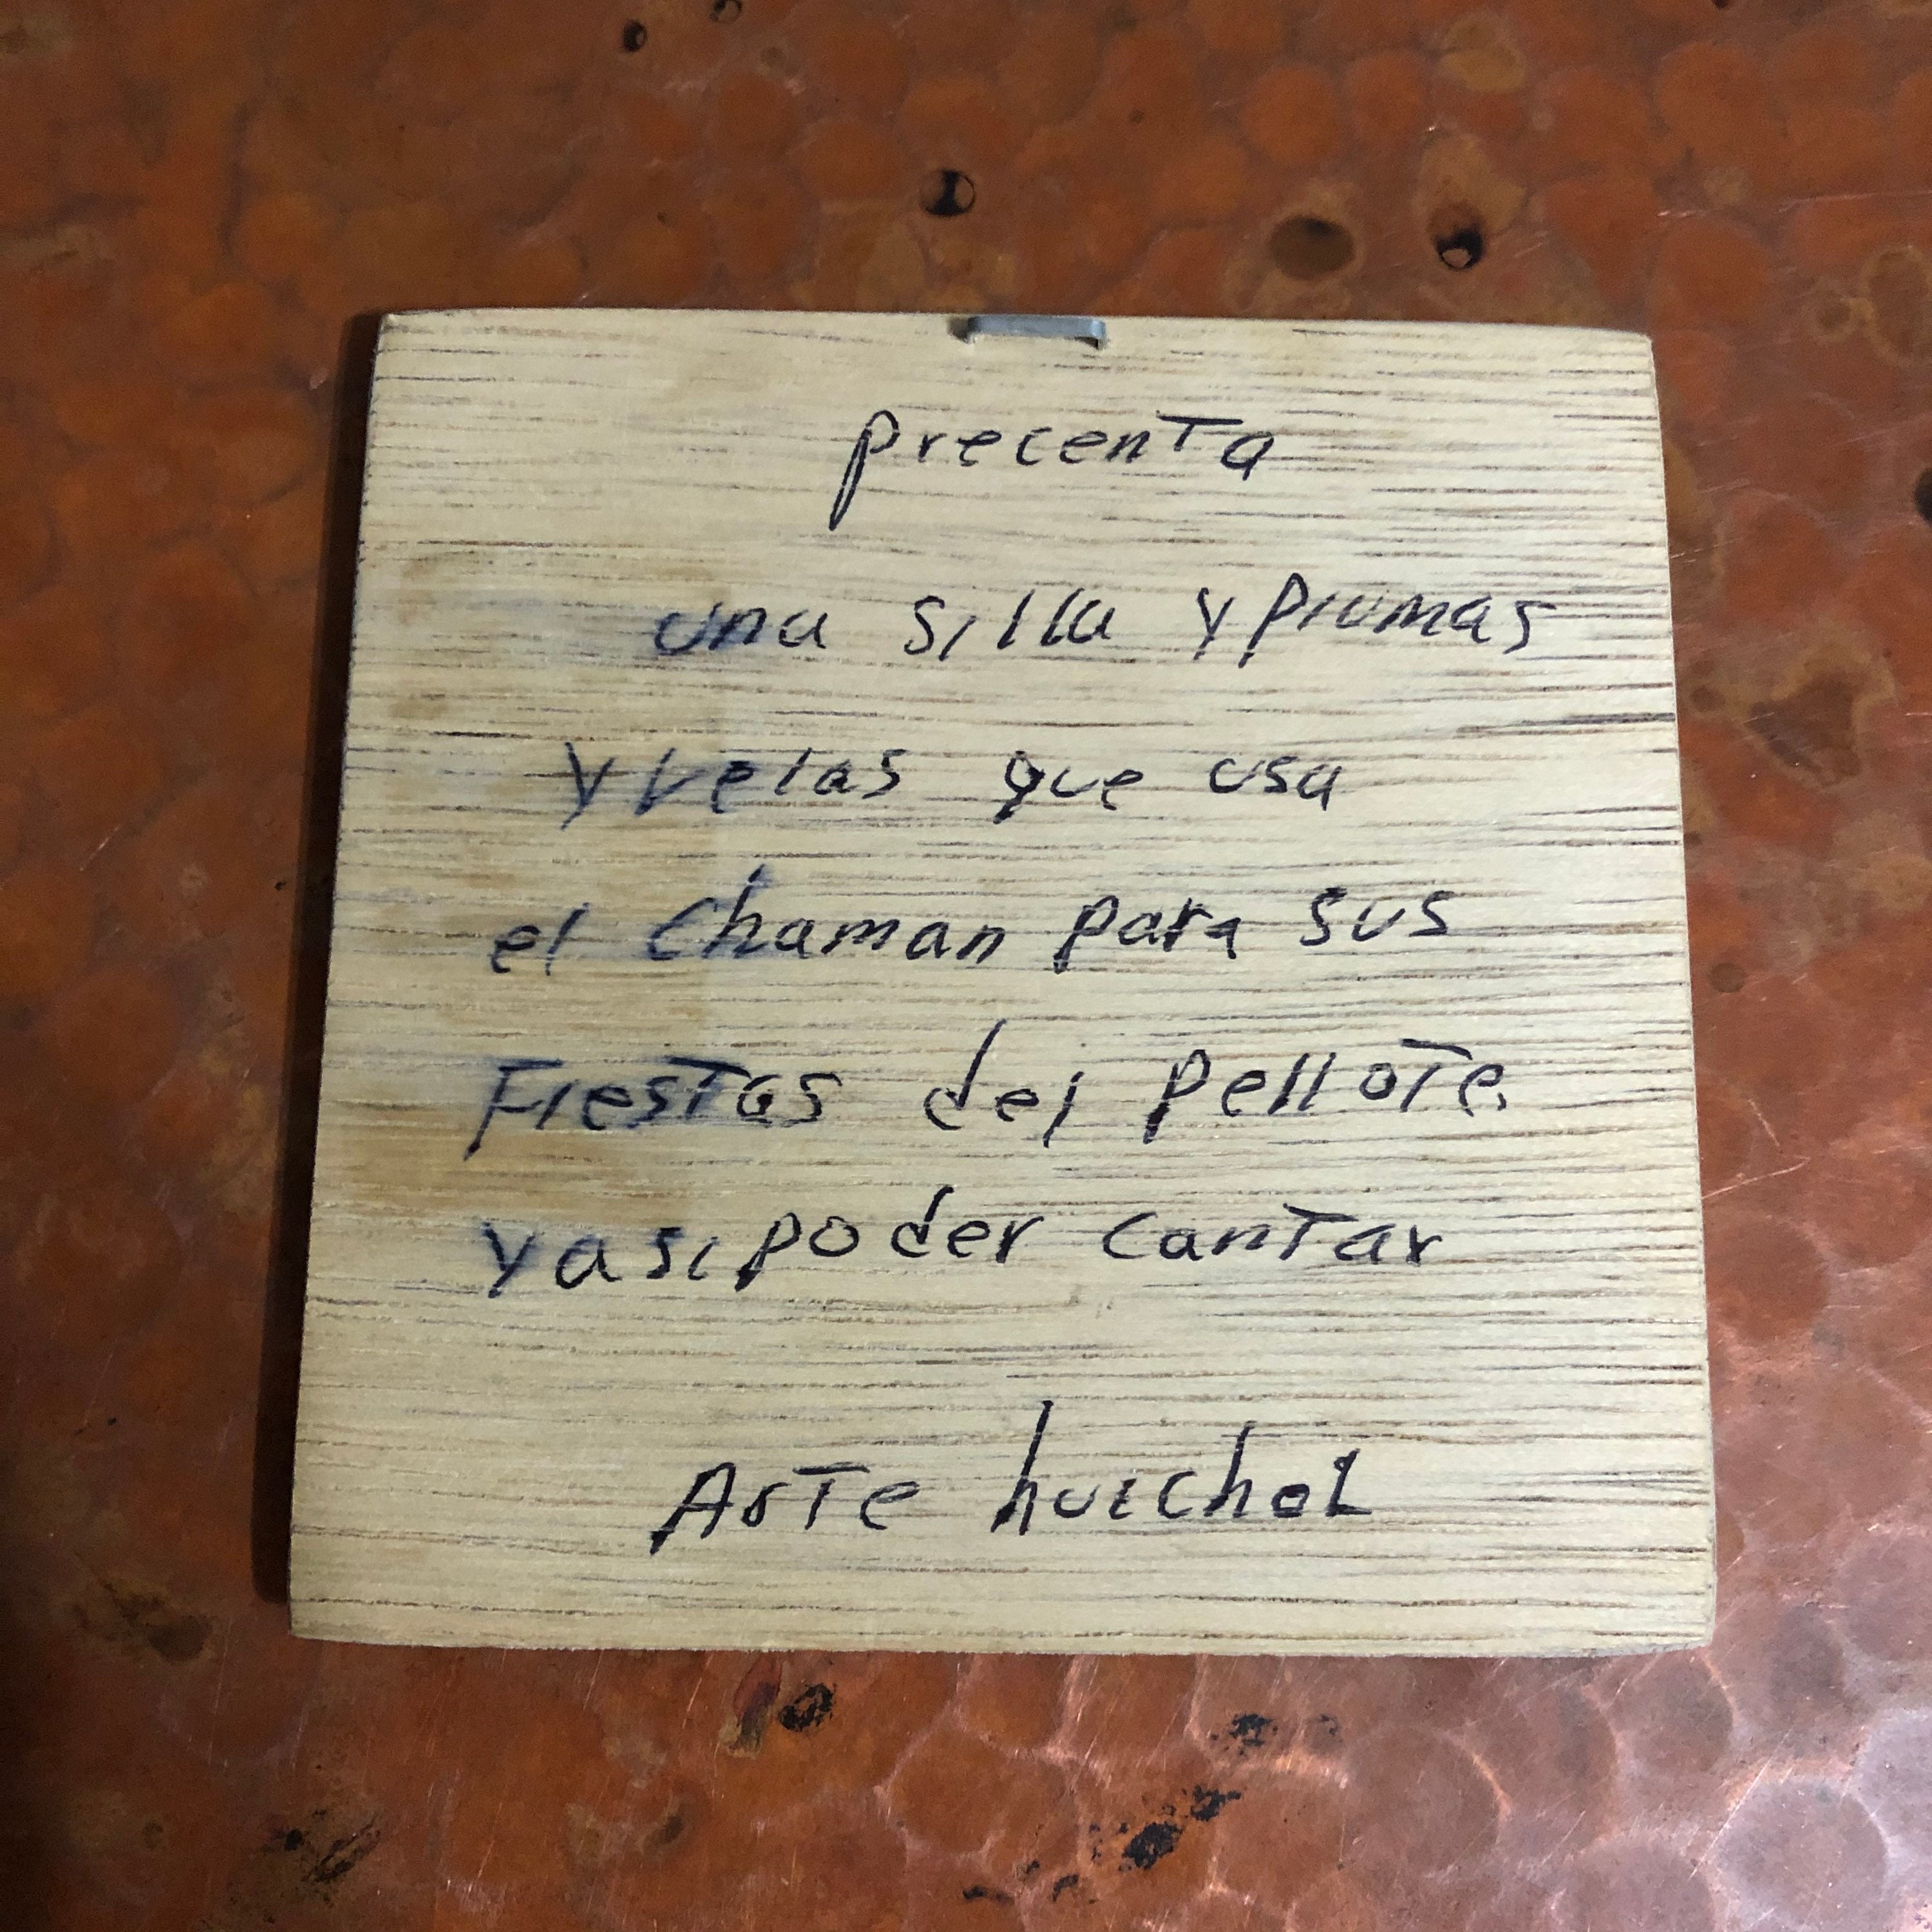 precenta
una silla y plumas
y velas que usa
el chaman para sus
Fiestas del pellote.
y asi poder cantar
Arte huichol